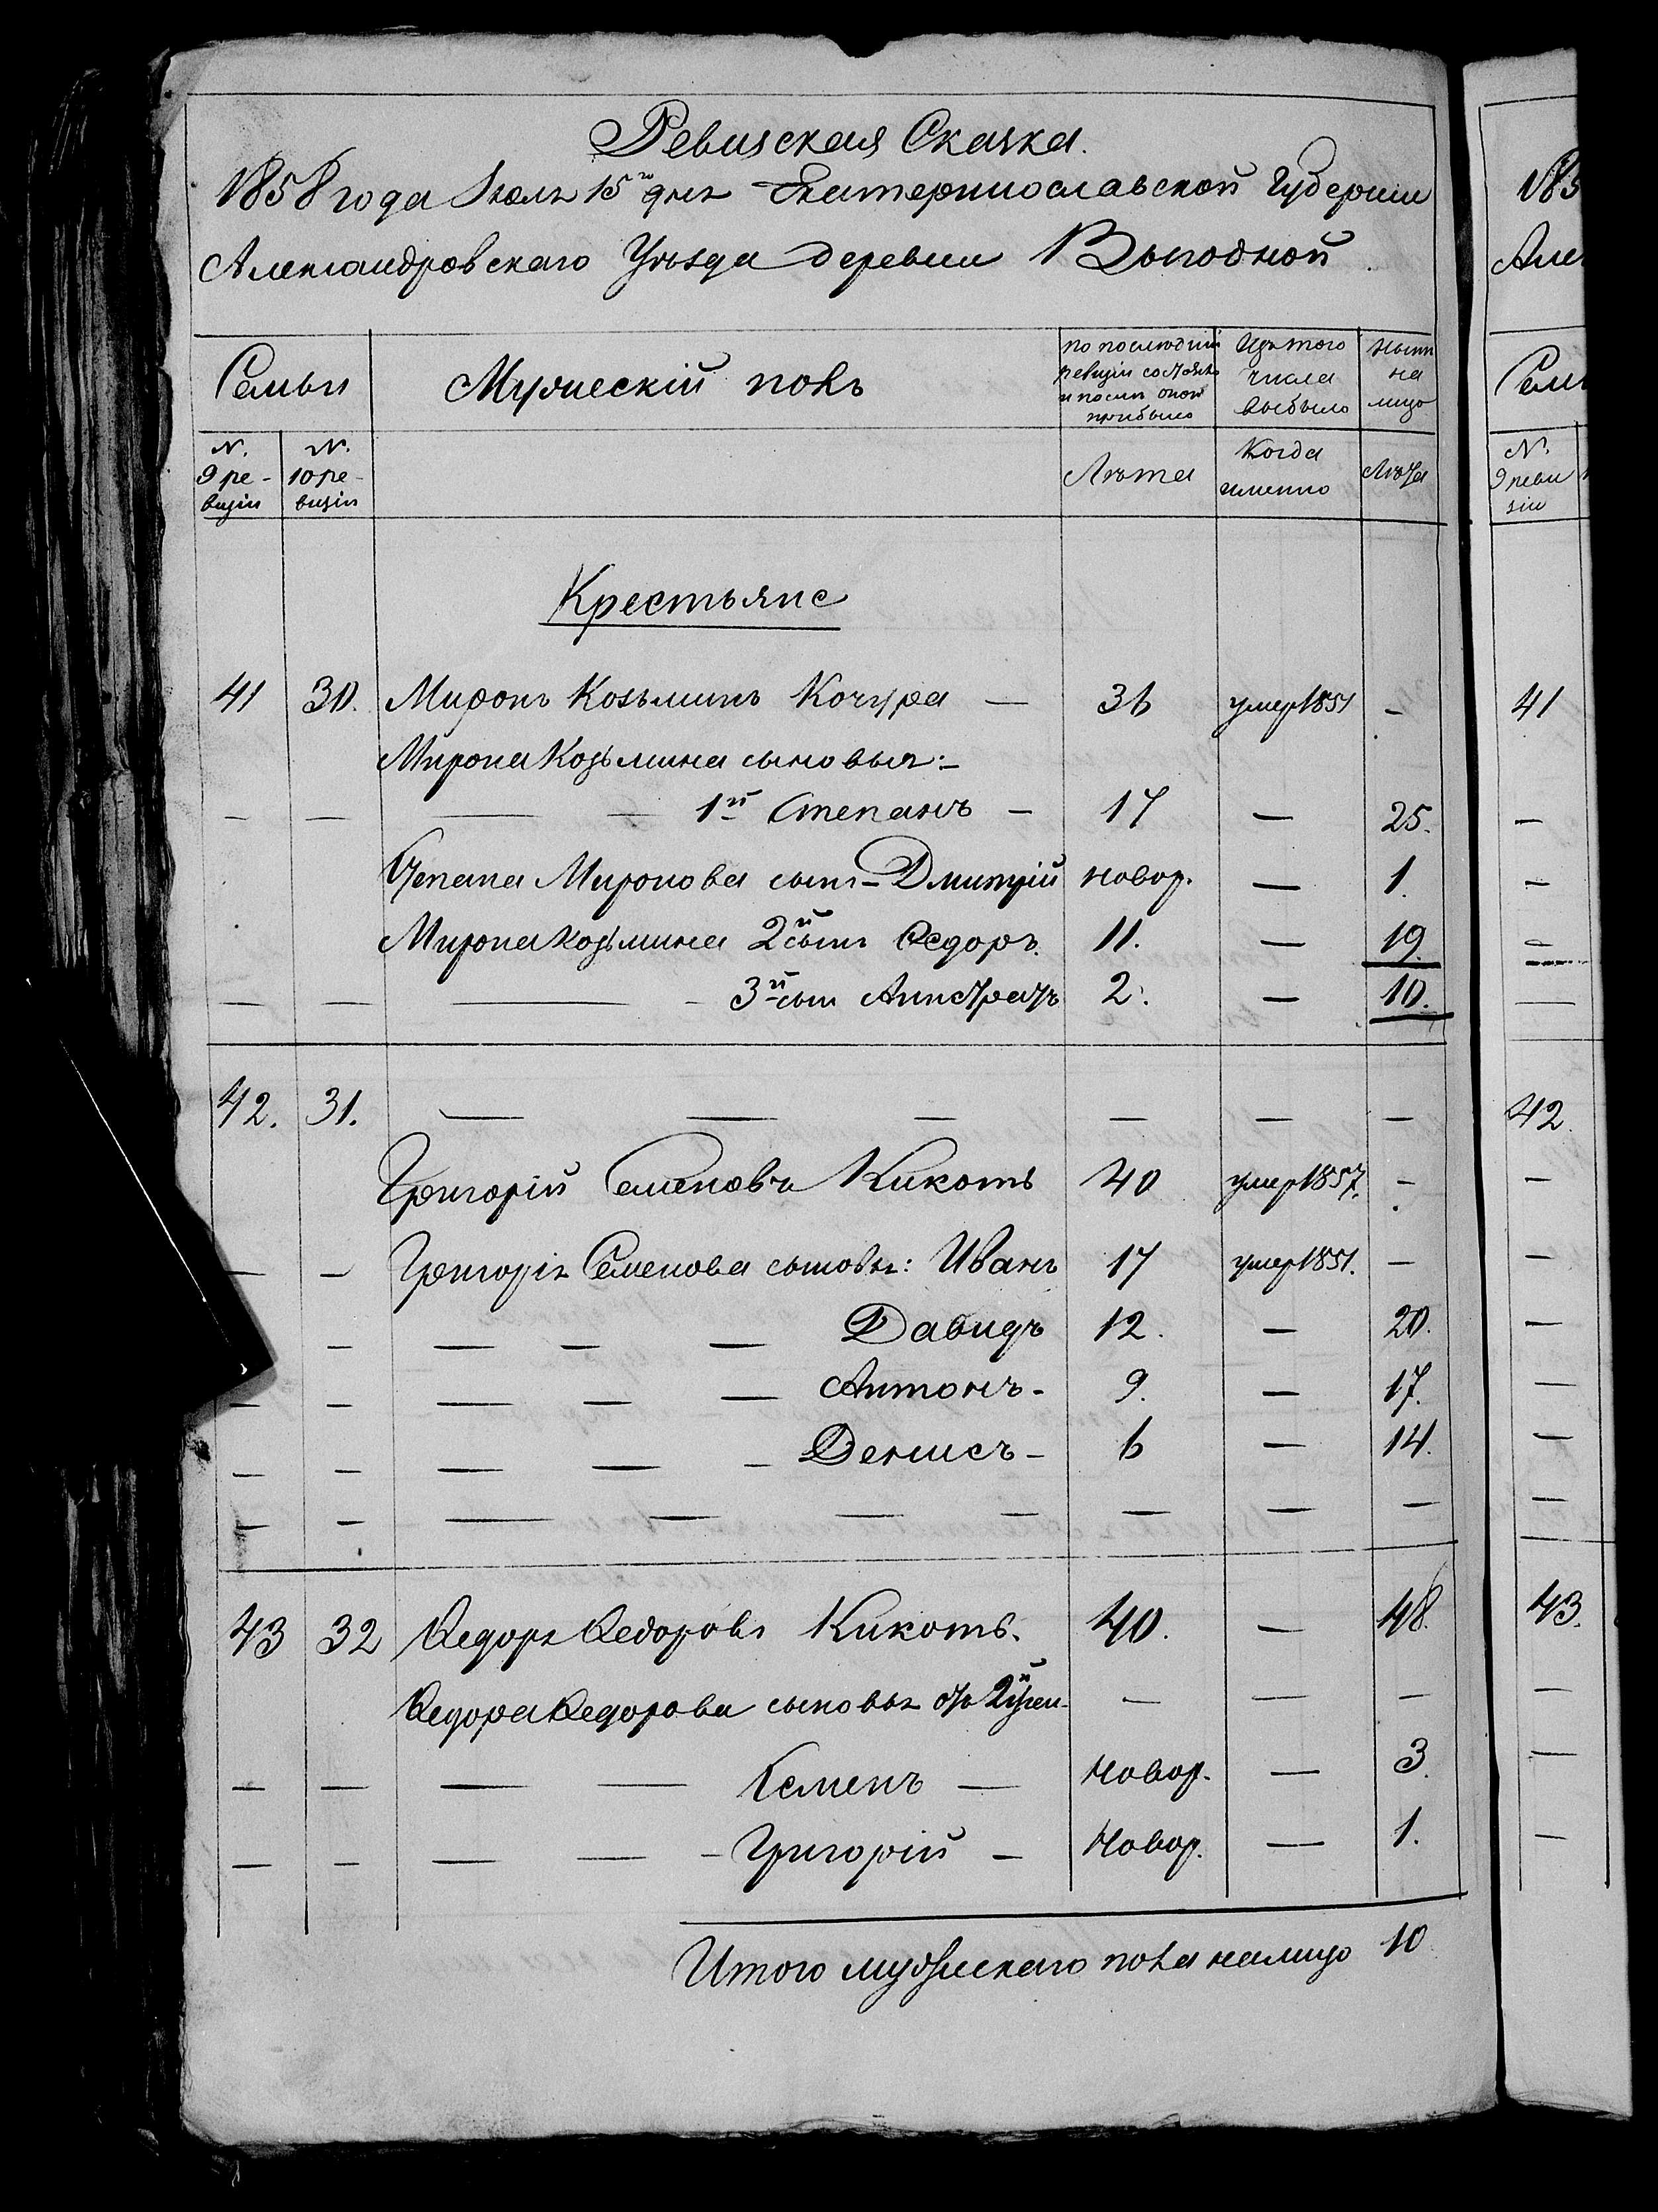 Ревизская Сказка.
1858 года Іюля 15го дня Екатеринославской Губерніи
Александровскаго Уѣзда деревни Выгодной
Семьи
Мужескій полъ
по послѣдній
ревизіи состояло
и послѣ оной
прибыло
Изъ того
числа
выбыло
нынѣ
на
лицо
N.
9 ре-
визіи
N.
10 ре-
визіи
Лѣта
Когда
именно
Лѣта
Крестьяне
41 30. Миронъ Козьминъ Кочура — 36 умер 1851 –
Мирона Козьмина сыновья:–
— — — — 1й Степанъ — 17 — 25.
Степана Миронова сынъ – Дмитрій новор. — 1.
Мирона Козьмина 2й сынъ Ѳедоръ. 11. — 19.
— — — – 3й сын Алистратъ 2. — 10.
42. 31. — — — — — —
Григорій Семеновъ Кикоть 40 умер 1857. –
— – Григорія Семенова сыновья: Иванъ 17 умер 1851. —
– — — — Давидъ 12. — 20.
– – — — — Антонъ – 9. — 17.
– – — — – Денисъ – 6 — 14.
– – — — — — — — —
43 32 Ѳедоръ Ѳедоровъ Кикоть. 40. — 48.
Ѳедора Ѳедорова сыновья отъ 2й жен. — — —
— — — — Семенъ — новор. — 3.
— – — — – Григорій – Новор. — 1.
Итого мужескаго пола налицо 10
185
Алек
Семь
N.
9 реви
зіи
41
–
–
–
—
42.
–
–
–
–
–
–
43.
–
–
–